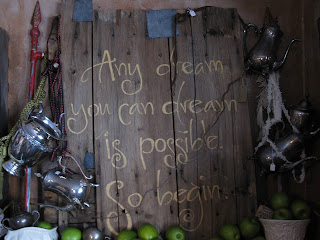 Any dream
you can dream
is possible.
So begin.